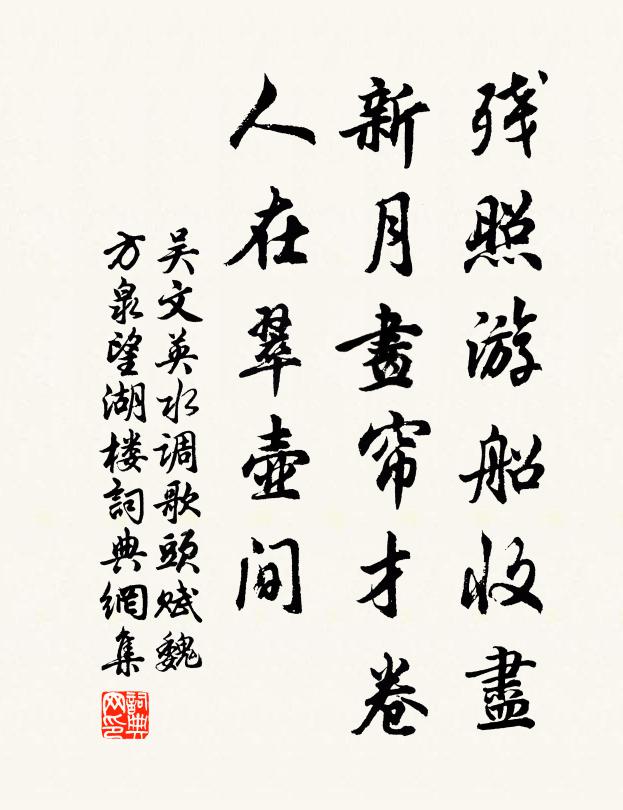 残照游船收盡
新月畫帘才卷
人在翠壺间
吴文英水调歌頭赋魏
方泉望湖楼詞典網集
詞典網印